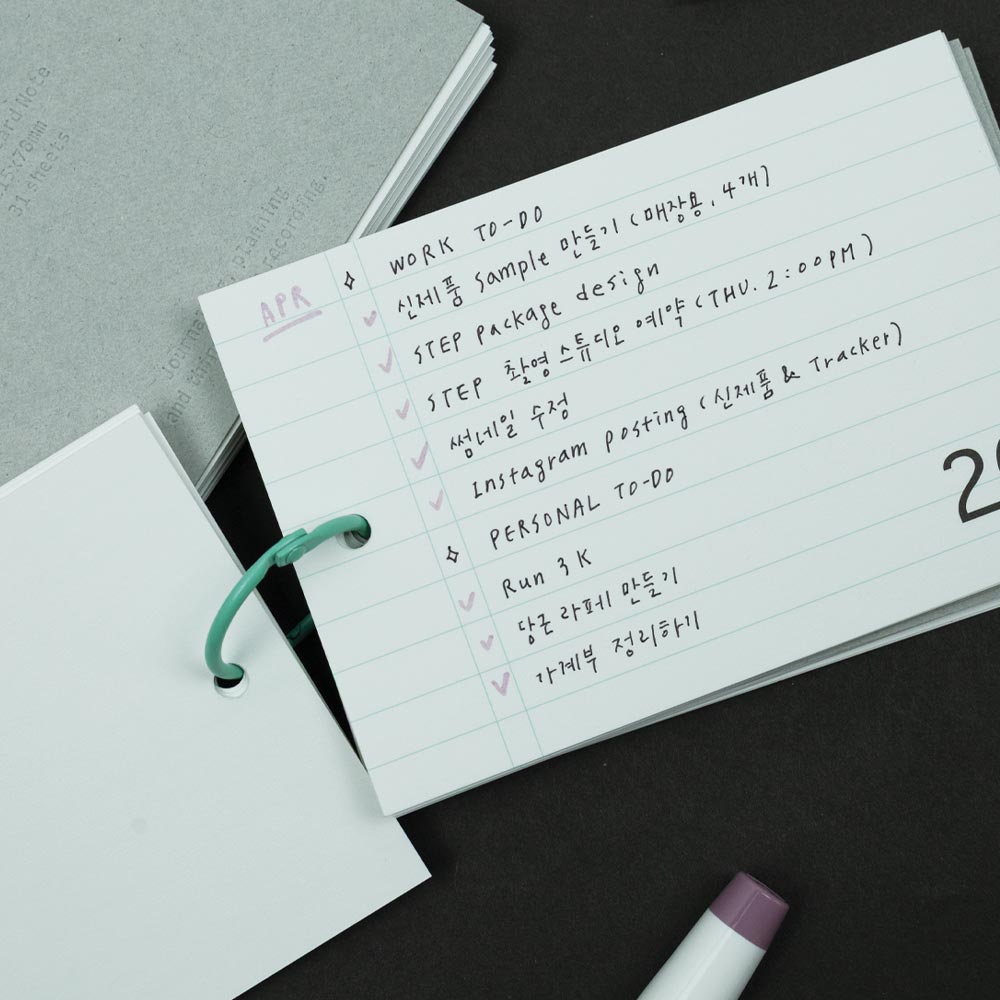 ardNote
15x76mm
31 Sheets
planning
recording.
and
APR
WORK TO-DO
신제품 Sample 만들기 (매장용, 4개)
STEP package design
STEP 촬영 스튜디오 예약 (THU. 2:00PM)
썸네일 수정
Instagram posting (신제품 & Tracker)
PERSONAL TO-DO
Run 3K
당근 라페 만들기
가계부 정리하기